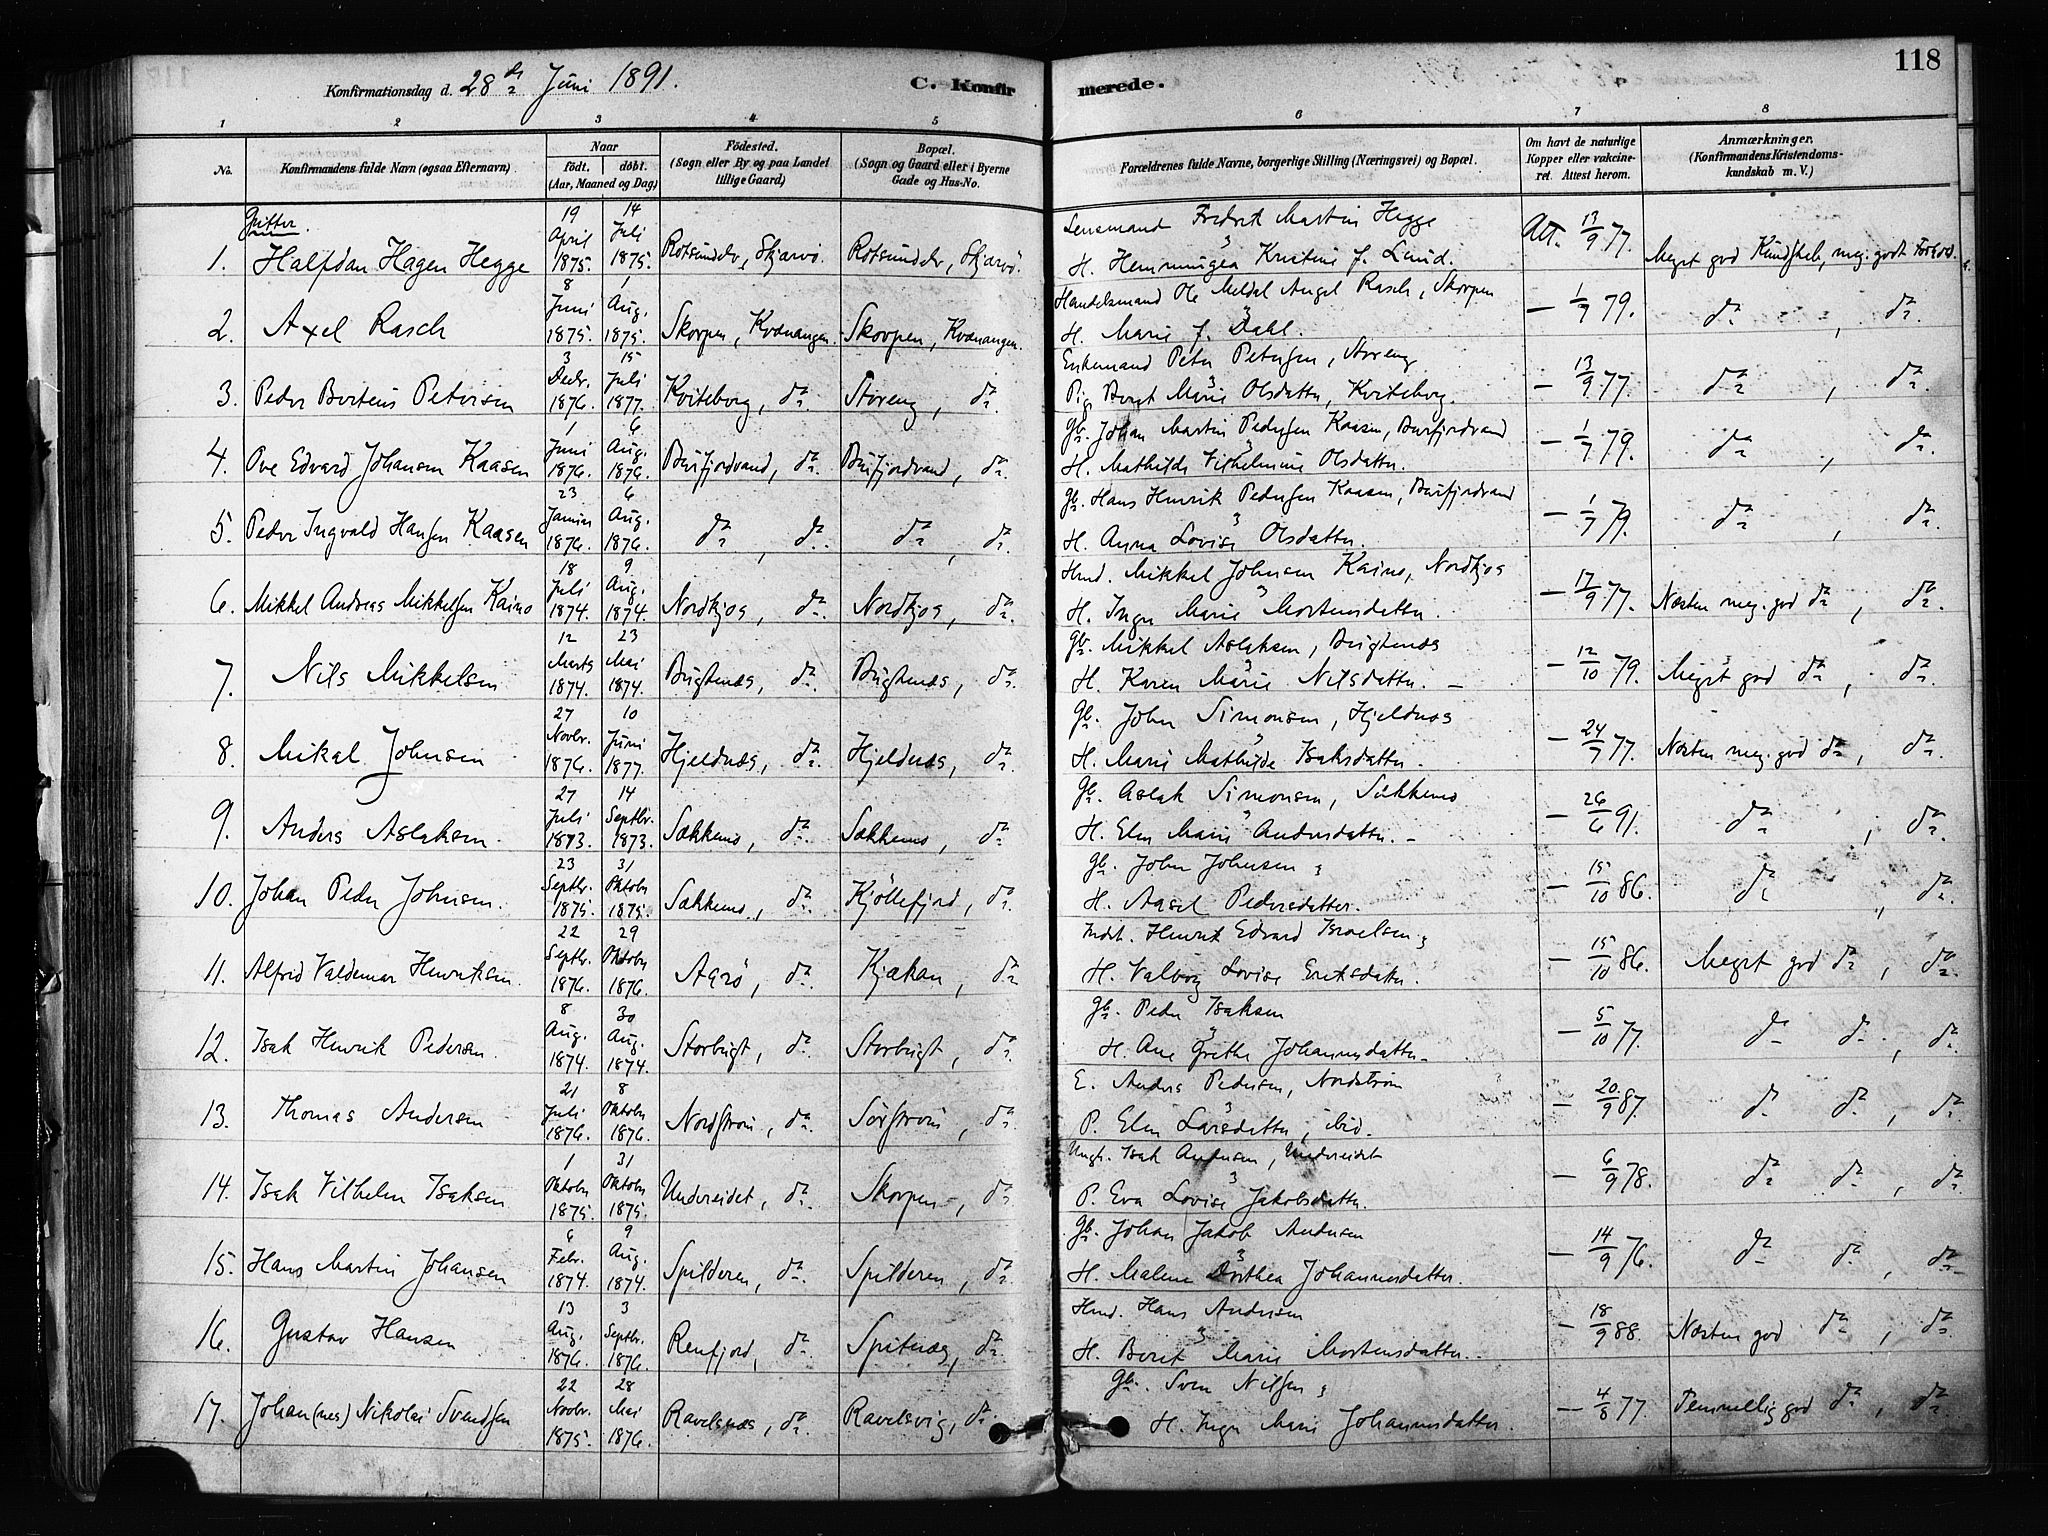 118
Konfirmationsdag d. 28de Juni 1891.
C. Konfirmerede.
1 2 3 4 5 6 7 8
No.
Konfirmandens fulde Navn (ogsaa Efternavn).
Naar
födt. döbt.
(Aar, Maaned og Dag)
Födested.
(Sogn eller By og paa Landet
tillige Gaard)
Bopæl.
(Sogn og Gaard eller i Byerne
Gade og Hus-No.
Forældrenes fulde Navne, borgerlige Stilling (Næringsvei) og Bopæl.
Om havt de naturlige
Kopper eller vakcine-
ret. Attest herom.
Anmærkninger.
(Konfirmandens Kristendoms-
kundskab m. V.)
Gutter.
1. Halfdan Hagen Hegge 19 April 1875. 14 Juli 1875. Rotsundelv, Skjærvö. Rotsundelv, Skjærvö.
Lensmand Fredrik Martin Hegge
H. Hemmingea Kristine f. Lund. Att. 13/9 77. Meget god Kundskab, meg. godt Forhold.
2. Axel Rasch 8 Juni 1875. 1 Aug. 1875. Skorpen, Kvænangen. Skorpen, Kvænangen.
Handelsmand Ole Meldal Angel Rasch, Skorpen
H. Marie f. Dahl. — 1/9 79. do , do.
3. Peder Berteus Petersen 3 Decbr. 1876. 15 Juli 1877. Kviteborg, do. Storeng, do.
Enkemand Peter Petersen, Storeng
Pig. Berit Marie Olsdatter, Kviteborg. — 13/9 77. do , do.
4. Ove Edvard Johansen Kaasen 1 Juni 1876. 6 Aug. 1876. Burfjordvand, do. Burfjordvand, do.
Gb. Johan Martin Pedersen Kaasen, Burfjordvand
H. Mathilde Vilhelmine Olsdatter. — 1/7 79. do , do.
5. Peder Ingvald Hansen Kaasen 23 Januar 1876. 6 Aug. 1876. do , do. do , do.
Gb. Hans Henrik Pedersen Kaasen, Burfjordvand
H. Anna Lovise Olsdatter. — 1/7 79. do , do.
6. Mikkel Andreas Mikkelsen Kaino 18 Juli 1874. 9 Aug. 1874. Nordkjos, do. Nordkjos, do.
Hmd. Mikkel Johnsen Kaino, Nordkjos
H. Inger Marie Mortensdatter. — 17/9 77. Næsten meg. god do , do.
7. Nils Mikkelsen 12 Marts 1874. 23 Mai 1874. Bugtenæs, do. Bugtenæs, do.
Gb. Mikkel Aslaksen, Bugtenæs
H. Karen Marie Nilsdatter. — 12/10 79. Meget god do , do.
8. Mikal Johnsen 27 Novbr. 1876. 10 Juni 1877. Hjeldnæs, do. Hjeldnæs, do.
Gb. John Simonsen, Hjeldnæs
H. Marie Mathilde Isaksdatter. — 24/7 77. Næsten meg. god do , do.
9. Anders Aslaksen 27 Juli 1873. 14 Septbr. 1873. Sækkemo, do. Sækkemo, do
Gb. Aslak Simonsen, Sækkemo
H. Elen Marie Andersdatter. — 26/6 91. do , do.
10. Johan Peder Johnsen. 23 Septbr. 1875. 31 Oktober 1875. Sækkemo, do. Kjöllefjord, do.
Gb. John Johnsen
H. Aasel Pedersdatter. — 15/10 86. do , do.
11. Alfred Valdemar Henriksen. 22 Septbr. 1876. 29 Oktober 1876. Aarö, do. Kjækan, do
Indst. Henrik Edvard Israelsen
H. Valborg Lovise Eriksdatter. — 15/10 86. Meget god do , do.
12. Isak Henrik Pedersen. 8 Aug. 1874. 30 Aug. 1874. Storbugt, do. Storbugt, do.
Gb. Peder Isaksen
H. Ane Grethe Johannesdatter. — 5/10 77. do do. , do.
13. Thomas Andersen 21 Juli 1876. 8 Oktober 1876. Nordström, do. Sörström, do.
E. Anders Pedersen, Nordström
P. Elen Larsdatter, ibid. — 20/9 87. do do , do
14. Isak Vilhelm Isaksen 1 Oktober 1875. 31 Oktober 1875. Undereidet, do. Skorpen, do
Ungk. Isak Andersen, Undereidet
P. Eva Lovise Jakobsdatter. — 6/9 78. do do , do
15. Hans Martin Johansen 6 Febr. 1874. 9 Aug. 1874. Spilderen, do. Spilderen, do.
Gb. Johan Jakob Andersen
H. Malene Dorthea Johannesdatter. — 14/9 76. do do , do
16. Gustav Hansen 13 Aug. 1876. 3 Septbr. 1876. Renfjord, do. Spitnæs, do.
Hmd. Hans Andersen
H. Berit Marie Mortensdatter. — 18/9 88. Næsten god do , do.
17. Johan(nes) Nikolai Svendsen 22 Novbr. 1875. 28 Mai 1876. Ravelsnæs, do. Ravelsvig, do.
Gb. Sven Nilsen
H. Inger Marie Johannesdatter. — 4/8 77. Temmelig god do , do.